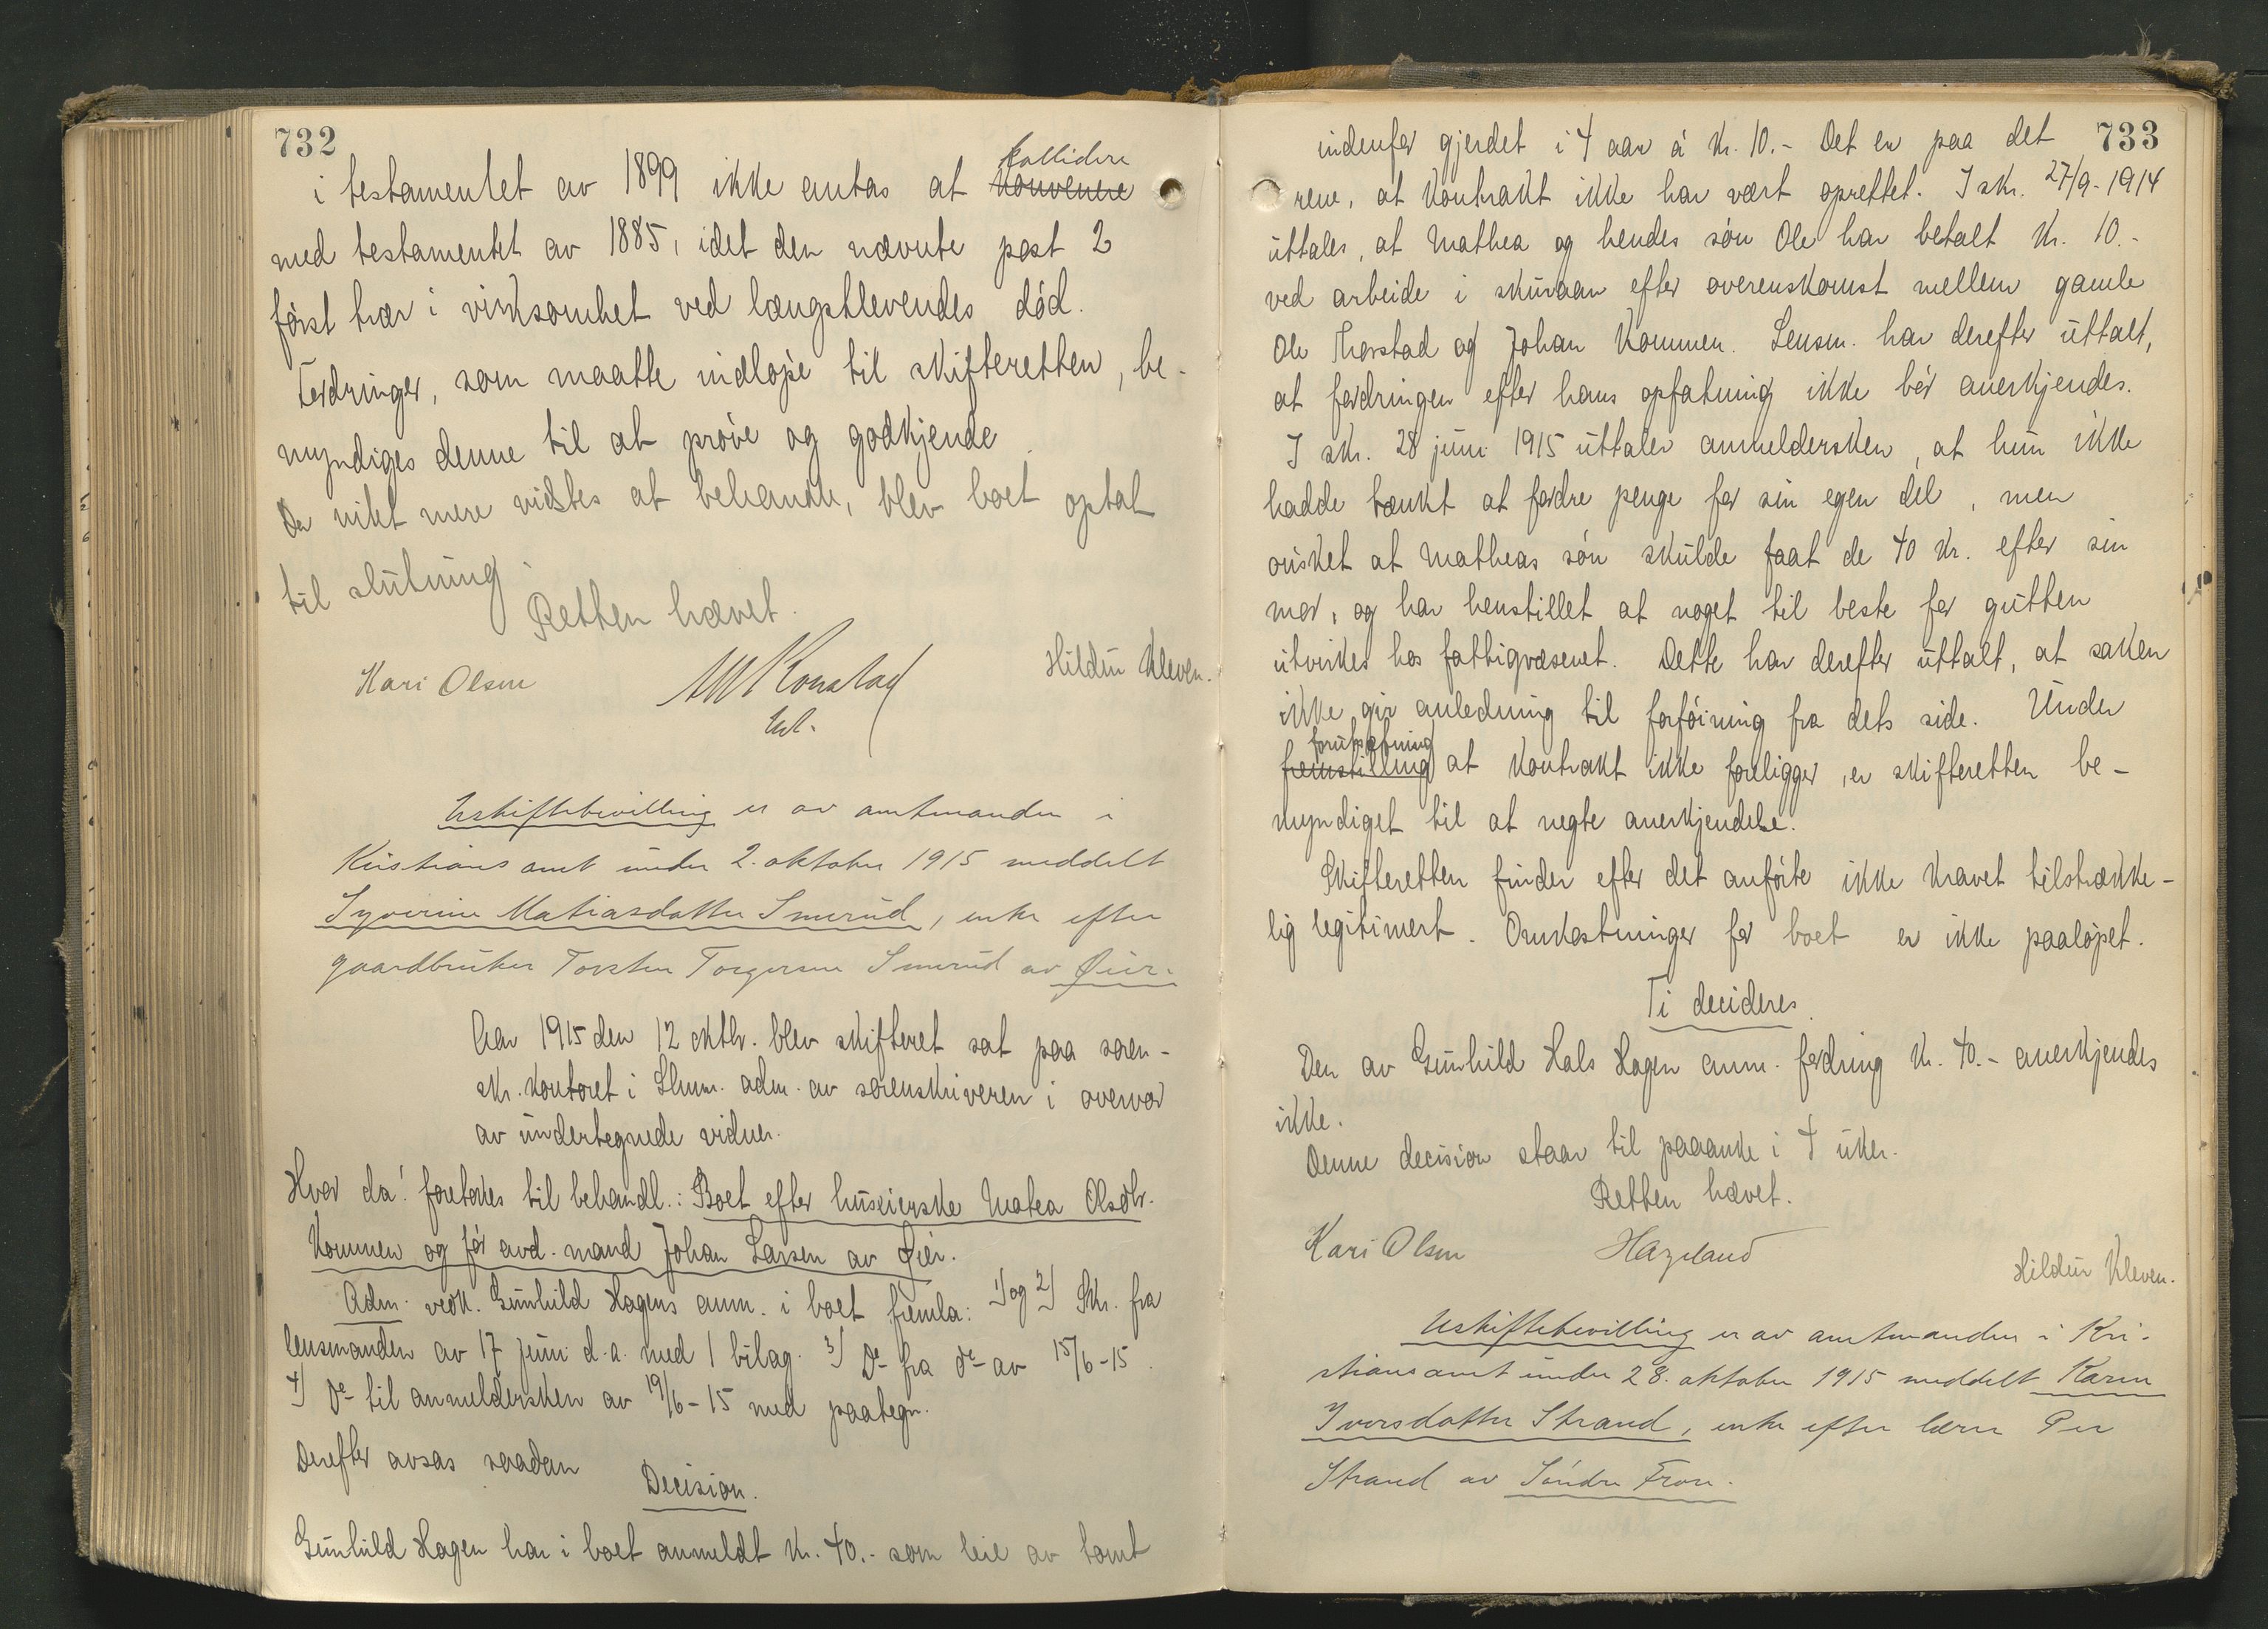 732
kollidere
i testamentet av 1899 ikke antas at konvenere
med testamentet av 1885, idet den nævnte post 2
først trær i virksomhet ved længstlevendes død.
Fordringer, som maatte indløpe til skifteretten, be-
myndiges denne til at prøve og godkjende.
Da intet mere vidstes at behandle, blev boet optat
til slutning.
Retten hævet.
Kari Olsen
Hildur Kleven.
Uskiftebevilling er av amtmanden i
Kristians amt under 2. oktober 1915 meddelt
Syverine Matiasdatter Smerud, enke efter
gaardbruker Torsten Torgersen Smerud av Øier.
Aar 1915 den 12 oktbr. blev skifteret sat paa soren-
skr. kontoret i Lhmr. adm. av sorenskriveren i overvær
av undertegnede vidner.
Hvor da! foretokes til behandl.: Boet efter huseierske Matea Olsdtr.
Kommen og før avd. mand Johan Larsen av Øier.
Adm. vedk. Gunhild Hagens anm. i boet fremla: 1) og 2) Skr. fra
lensmanden av 17 juni d.a. med 1 bilag. 3) Do fra do av 15/6-15.
4) Do til anmeldersken av 19/6-15 med paategn.
Derefter avsas saadan
Decision.
Gunhild Hagen har i boet anmeldt kr. 40.- som leie av tomt
733
indenfor gjerdet i 4 aar á kr. 10.- Det er paa det
rene, at kontrakt ikke har vært oprettet. I skr. 27/9-1914
uttales, at Mathea og hendes søn Ole har betalt kr. 10.-
ved arbeide i skuraan efter overenskomst mellem gamle
Ole Thorstad og Johan Kommen. Lensm. har derefter uttalt,
at fordringen efter hans opfatning ikke bør anerkjendes.
I skr. 28 juni 1915 uttaler anmeldersken, at hun ikke
hadde tænkt at fordre penge for sin egen del, men
ønsket at Matheas søn skulde faat de 40 kr. efter sin
mor, og har henstillet at noget til beste for gutten
utvirkes hos fattigvæsenet. Dette har derefter uttalt, at saken
ikke gir anledning til forføining fra dets side. Under
forutsætning
fremstilling at kontrakt ikke foreligger, er skifteretten be-
myndiget til at negte anerkjendelse.
Skifteretten finder efter det anførte ikke kravet tilstrække-
lig legitimert. Omkostninger for boet er ikke paaløpet.
Ti decideres.
Den av Gunhild Hals Hagen anm. fordring kr. 40.- anerkjendes
ikke.
Denne decision staar til paaanke i 4 uker.
Retten hævet.
Kari Olsen
Hageland
Hildur Kleven.
Uskiftebevilling er av amtmanden i Kri-
stians amt under 28. oktober 1915 meddelt Karen
Iversdatter Strand, enke efter lærer Per
Strand av Søndre Fron.